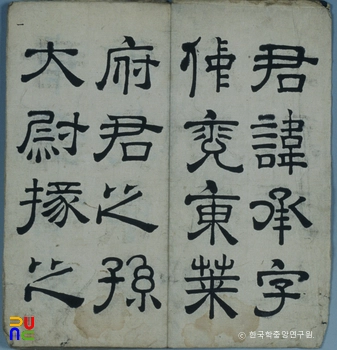 君諱承字
仲兗東萊
府君之孫
大尉掾之
© 한국학중앙연구원